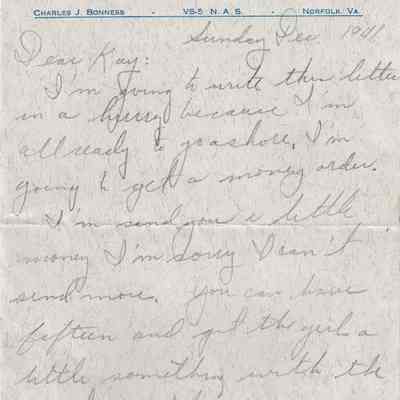 CHARLES J. BONNESS - VS-5 N. A. S. - NORFOLK, VA.
Sunday Dec 1941
Dear Kay:
I'm going to write this letter
in a hurry because I'm
all ready to go ashore. I'm
going to get a money order.
I'm send you a little
money I'm sorry I can't
send more. You can have
fifteen and get the girls a
little something with the